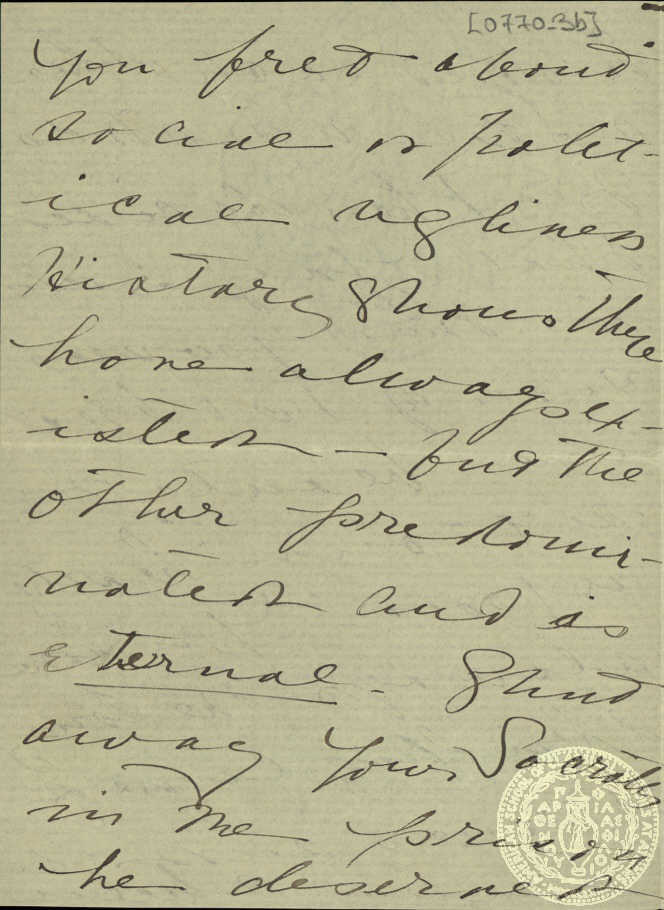 [0770-3b]
You fret about
social or polit-
ical ugliness
History shows these
have always ex-
isted - but the
other predomi-
nated and is
eternal - Shut
away your Socrates
in the prison
he deserves